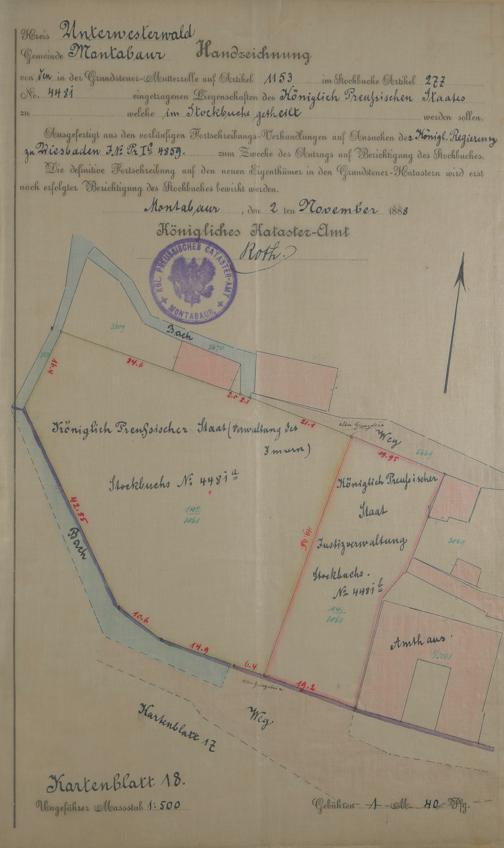 Kreis Unterwesterwald
Gemeinde Montabaur Handzeichnung
von der in der Grundsteuer-Mutterrolle auf Artikel 1153 im Stockbuche Artikel 277
No. 448i eingetragenen Liegenschaften des Königlich Preußischen Staates
zu welche im Stockbuche getheilt werden sollen.
Ausgefertigt aus den vorläufigen Fortschreibungs-Verhandlungen auf Ansuchen der Königl. Regierung
zu Wiesbaden 4859. zum Zwecke des Antrags auf Berichtigung des Stockbuches.
Die definitive Fortschreibung auf den neuen Eigenthümer in den Grundsteuer-Katastern wird erst
nach erfolgter Berichtigung des Stockbuches bewirkt werden.
Montabaur, den 2 ten November 1888
Königliches Kataster-Amt
Roth.
KGL. PREUSSISCHES CATASTER-AMT
MONTABAUR
Bach
24.6
Weg
19.95
Königlich Preußischer Staat (Verwaltung des
Innern)
Stockbuchs No 448i a
Königlich Preußischer
Staat
Justizverwaltung
Stockbuchs.
No 448i b
42.85
Bach
Amthaus.
10.6
14.9
6.4
19.2
Weg
Kartenblatt 17
Kartenblatt 18.
Ungefährer Massstab 1:500
Gebühren 1 M. 40 Pfg.